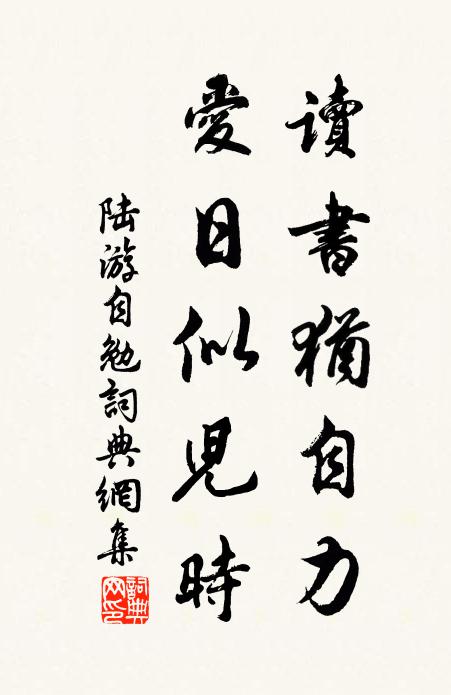 讀書猶自力
愛日似兒時
陸游自勉詞典網集
詞典网印